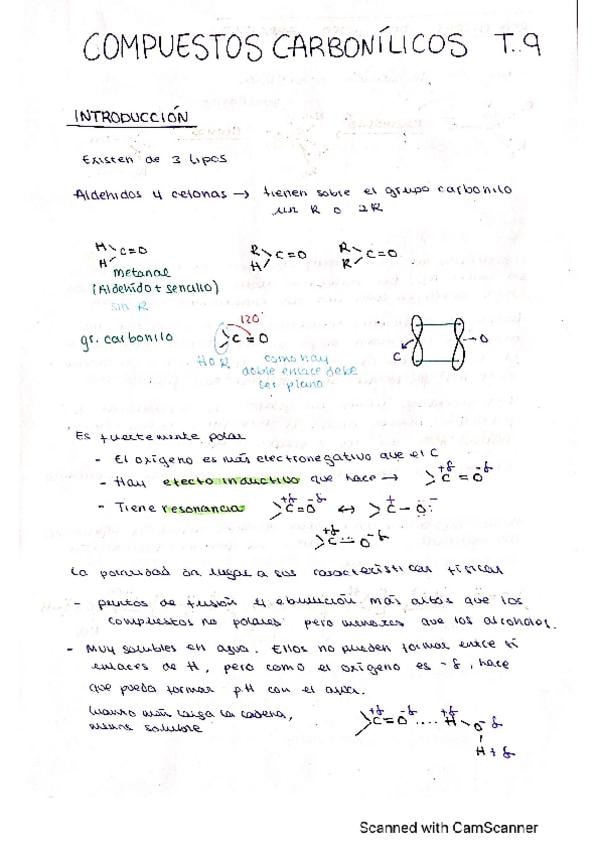 COMPUESTOS CARBONÍLICOS T.9
INTRODUCCIÓN
Existen de 3 tipos
Aldehidos y cetonas → tienen sobre el grupo carbonilo
un R o 2R
H H C=O
R H C=O
R R C=O
metanal
(Aldehído + sencillo)
sin R
gr. carbonilo
120°
C=O
H o R
como hay
doble enlace debe
ser plano
C
O
Es fuertemente polar
- El oxígeno es más electronegativo que el C
- Hay efecto inductivo que hace → C+δ = O-δ
- Tiene resonancia C+δ=O-δ ↔ C+ - O-
C+δ O-δ
La polaridad da lugar a sus características físicas
- puntos de fusión y ebullición más altos que los
compuestos no polares pero menores que los alcoholes.
- Muy solubles en agua. Ellos no pueden formar entre sí
enlaces de H, pero como el oxígeno es -δ, hace
que pueda formar pH con el agua.
Cuanto más larga la cadena,
menos soluble
C+δ=O-δ .... H+δ O-δ
H+δ
Scanned with CamScanner